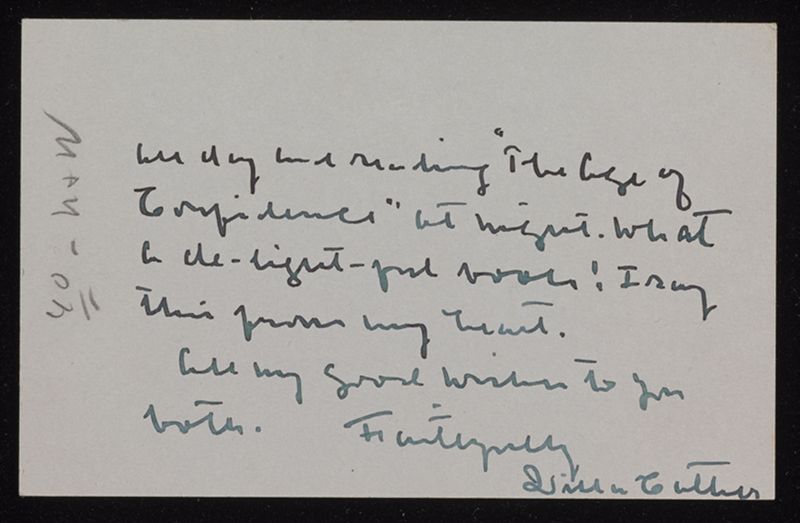 all day and reading "The Age of
Confidence" at night. What
a de-light-ful book! I say
this from my heart.
All my good wishes to you
both. Faithfully
Willa Cather